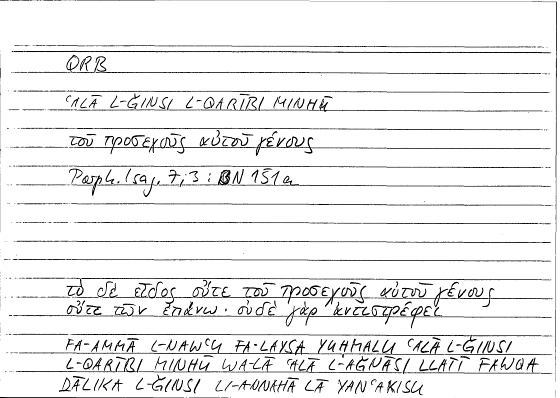 QRB
ʿALĀ L-ǦINSI L-QARĪBI MINHŪ
τοῦ προσεχοῦς αὐτοῦ γένους
Porph. Isag. 7,3 : BN 151a
τὸ δὲ εἶδος οὔτε τοῦ προσεχοῦς αὐτοῦ γένους
οὔτε τῶν ἐπάνω· οὐδὲ γὰρ ἀντιστρέφει
FA-AMMĀ L-NAWʿU FA-LAYSA YUḤMALU ʿALĀ L-ǦINSI
L-QARĪBI MINHŪ WA-LĀ ʿALĀ L-AǦNĀSI LLATĪ FAWQA
ḎĀLIKA L-ǦINSI LI-ANNAHĀ LĀ YANʿAKISU